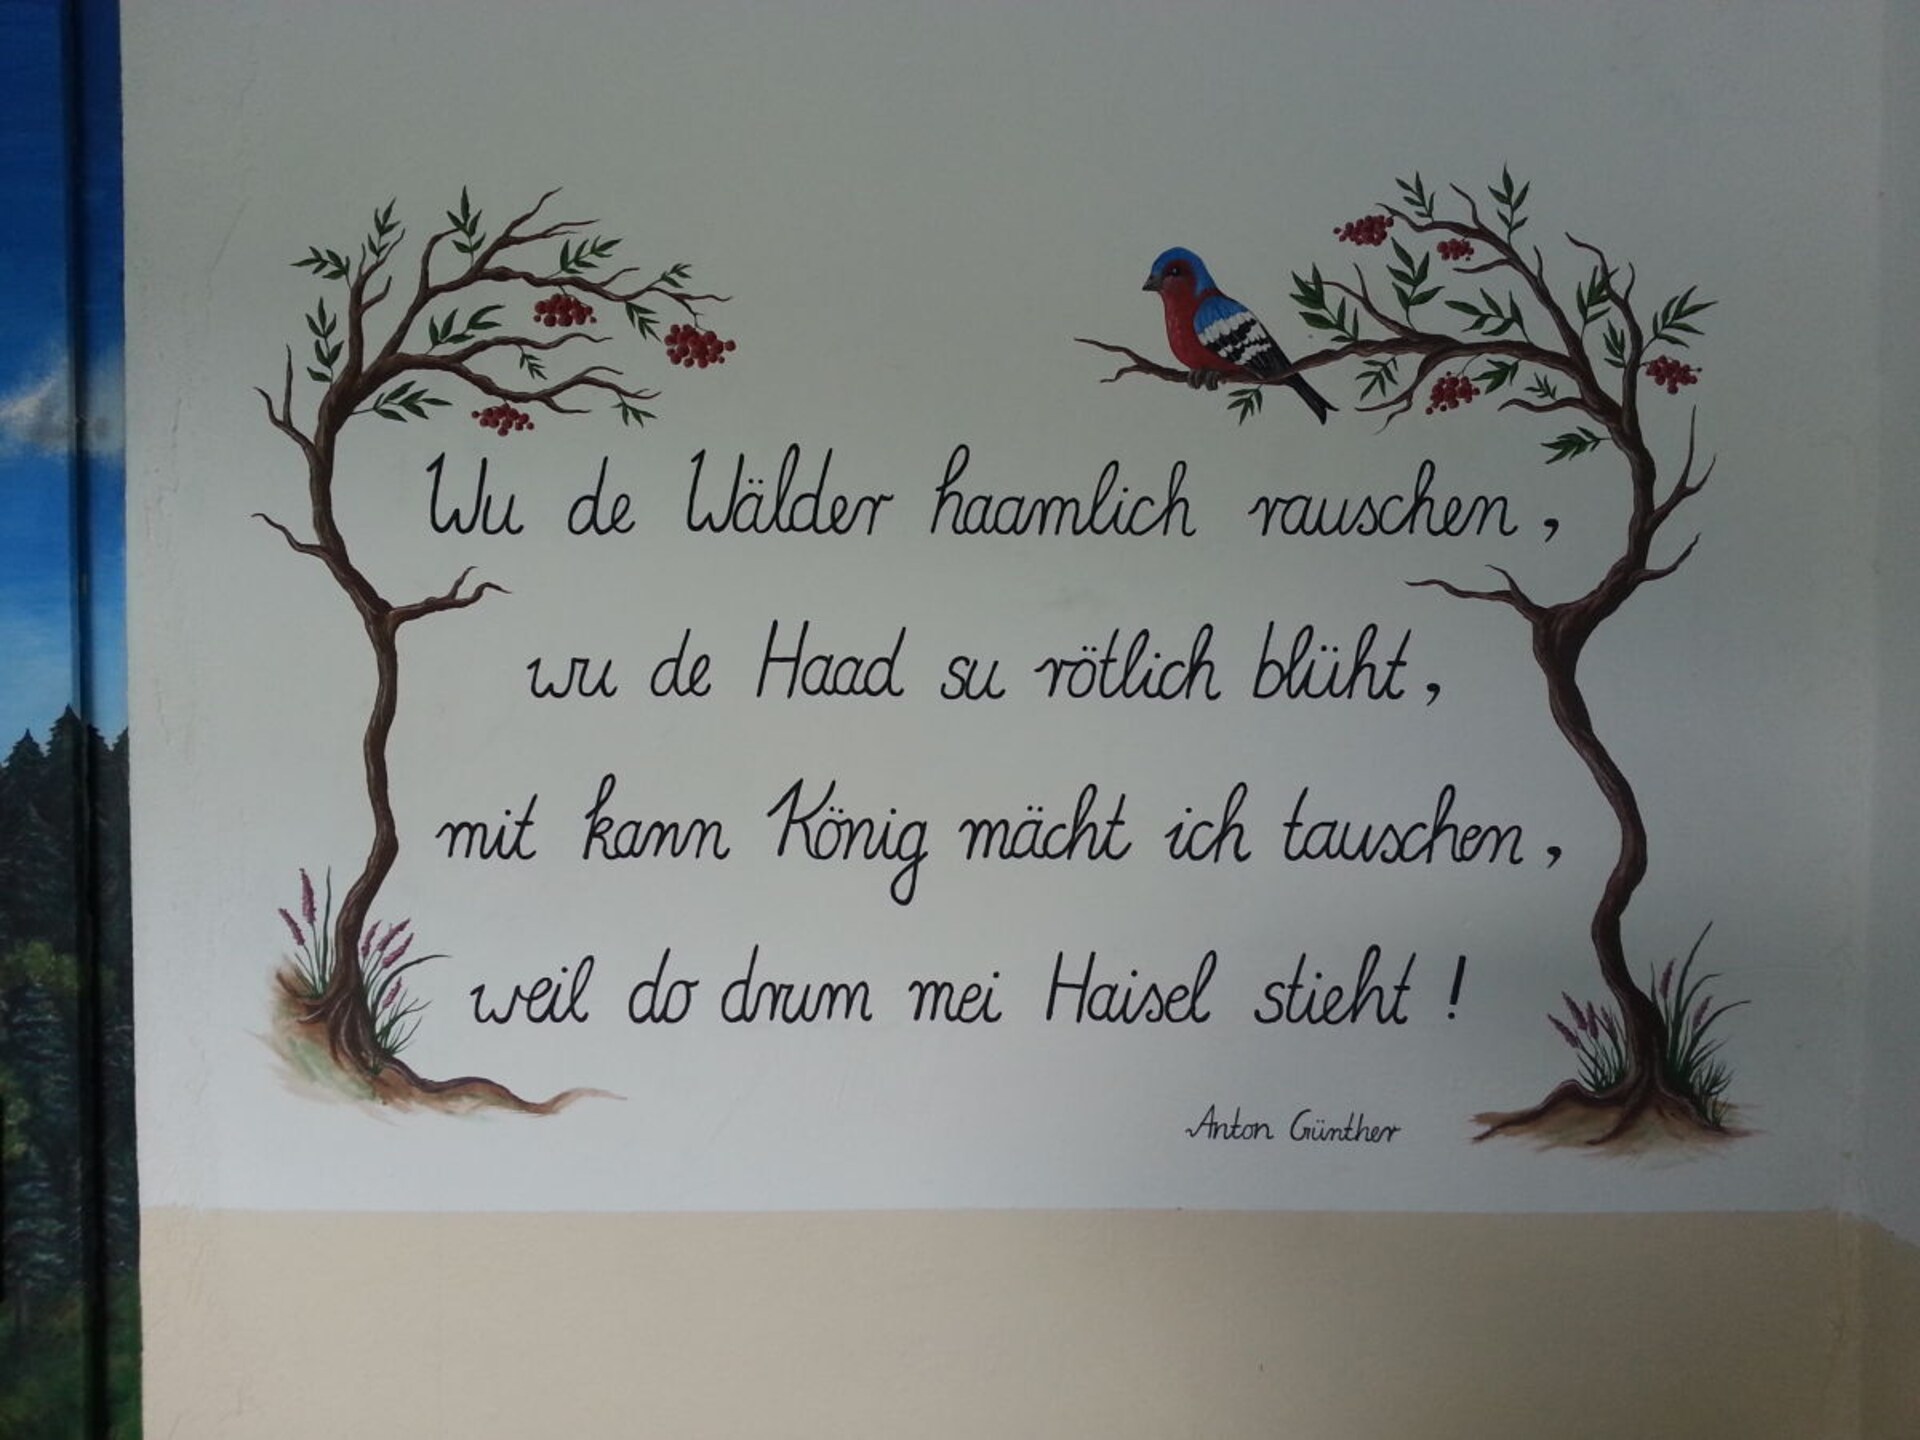 Wu de Wälder haamlich rauschen,
wu de Haad su rötlich blüht,
mit kann König mächt ich tauschen,
weil do drum mei Haisel stieht!
Anton Günther